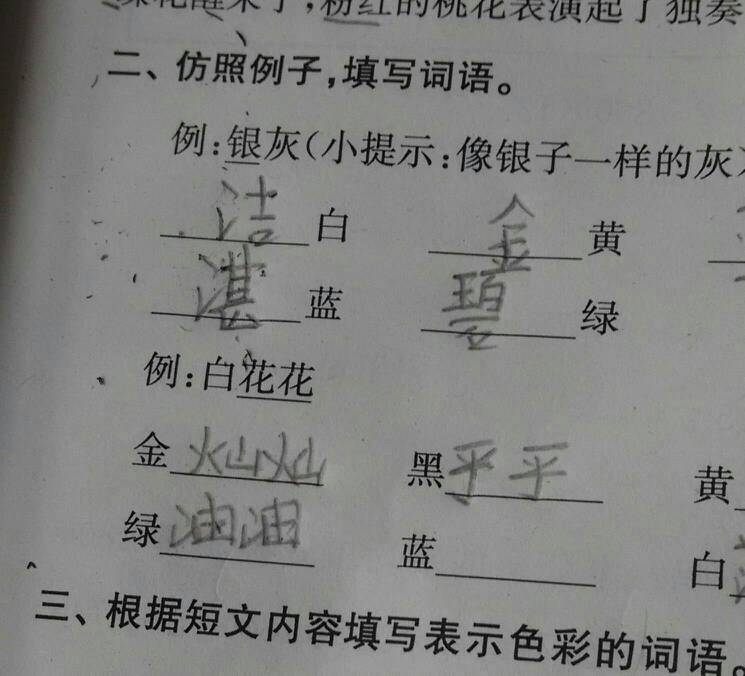 绿花醒来了,粉红的桃花表演起了独奏
二、仿照例子,填写词语。
例:银灰(小提示:像银子一样的灰)
洁白 金黄
湛蓝 碧绿
例:白花花
金灿灿 黑乎乎 黄
绿油油 蓝 白
三、根据短文内容填写表示色彩的词语。